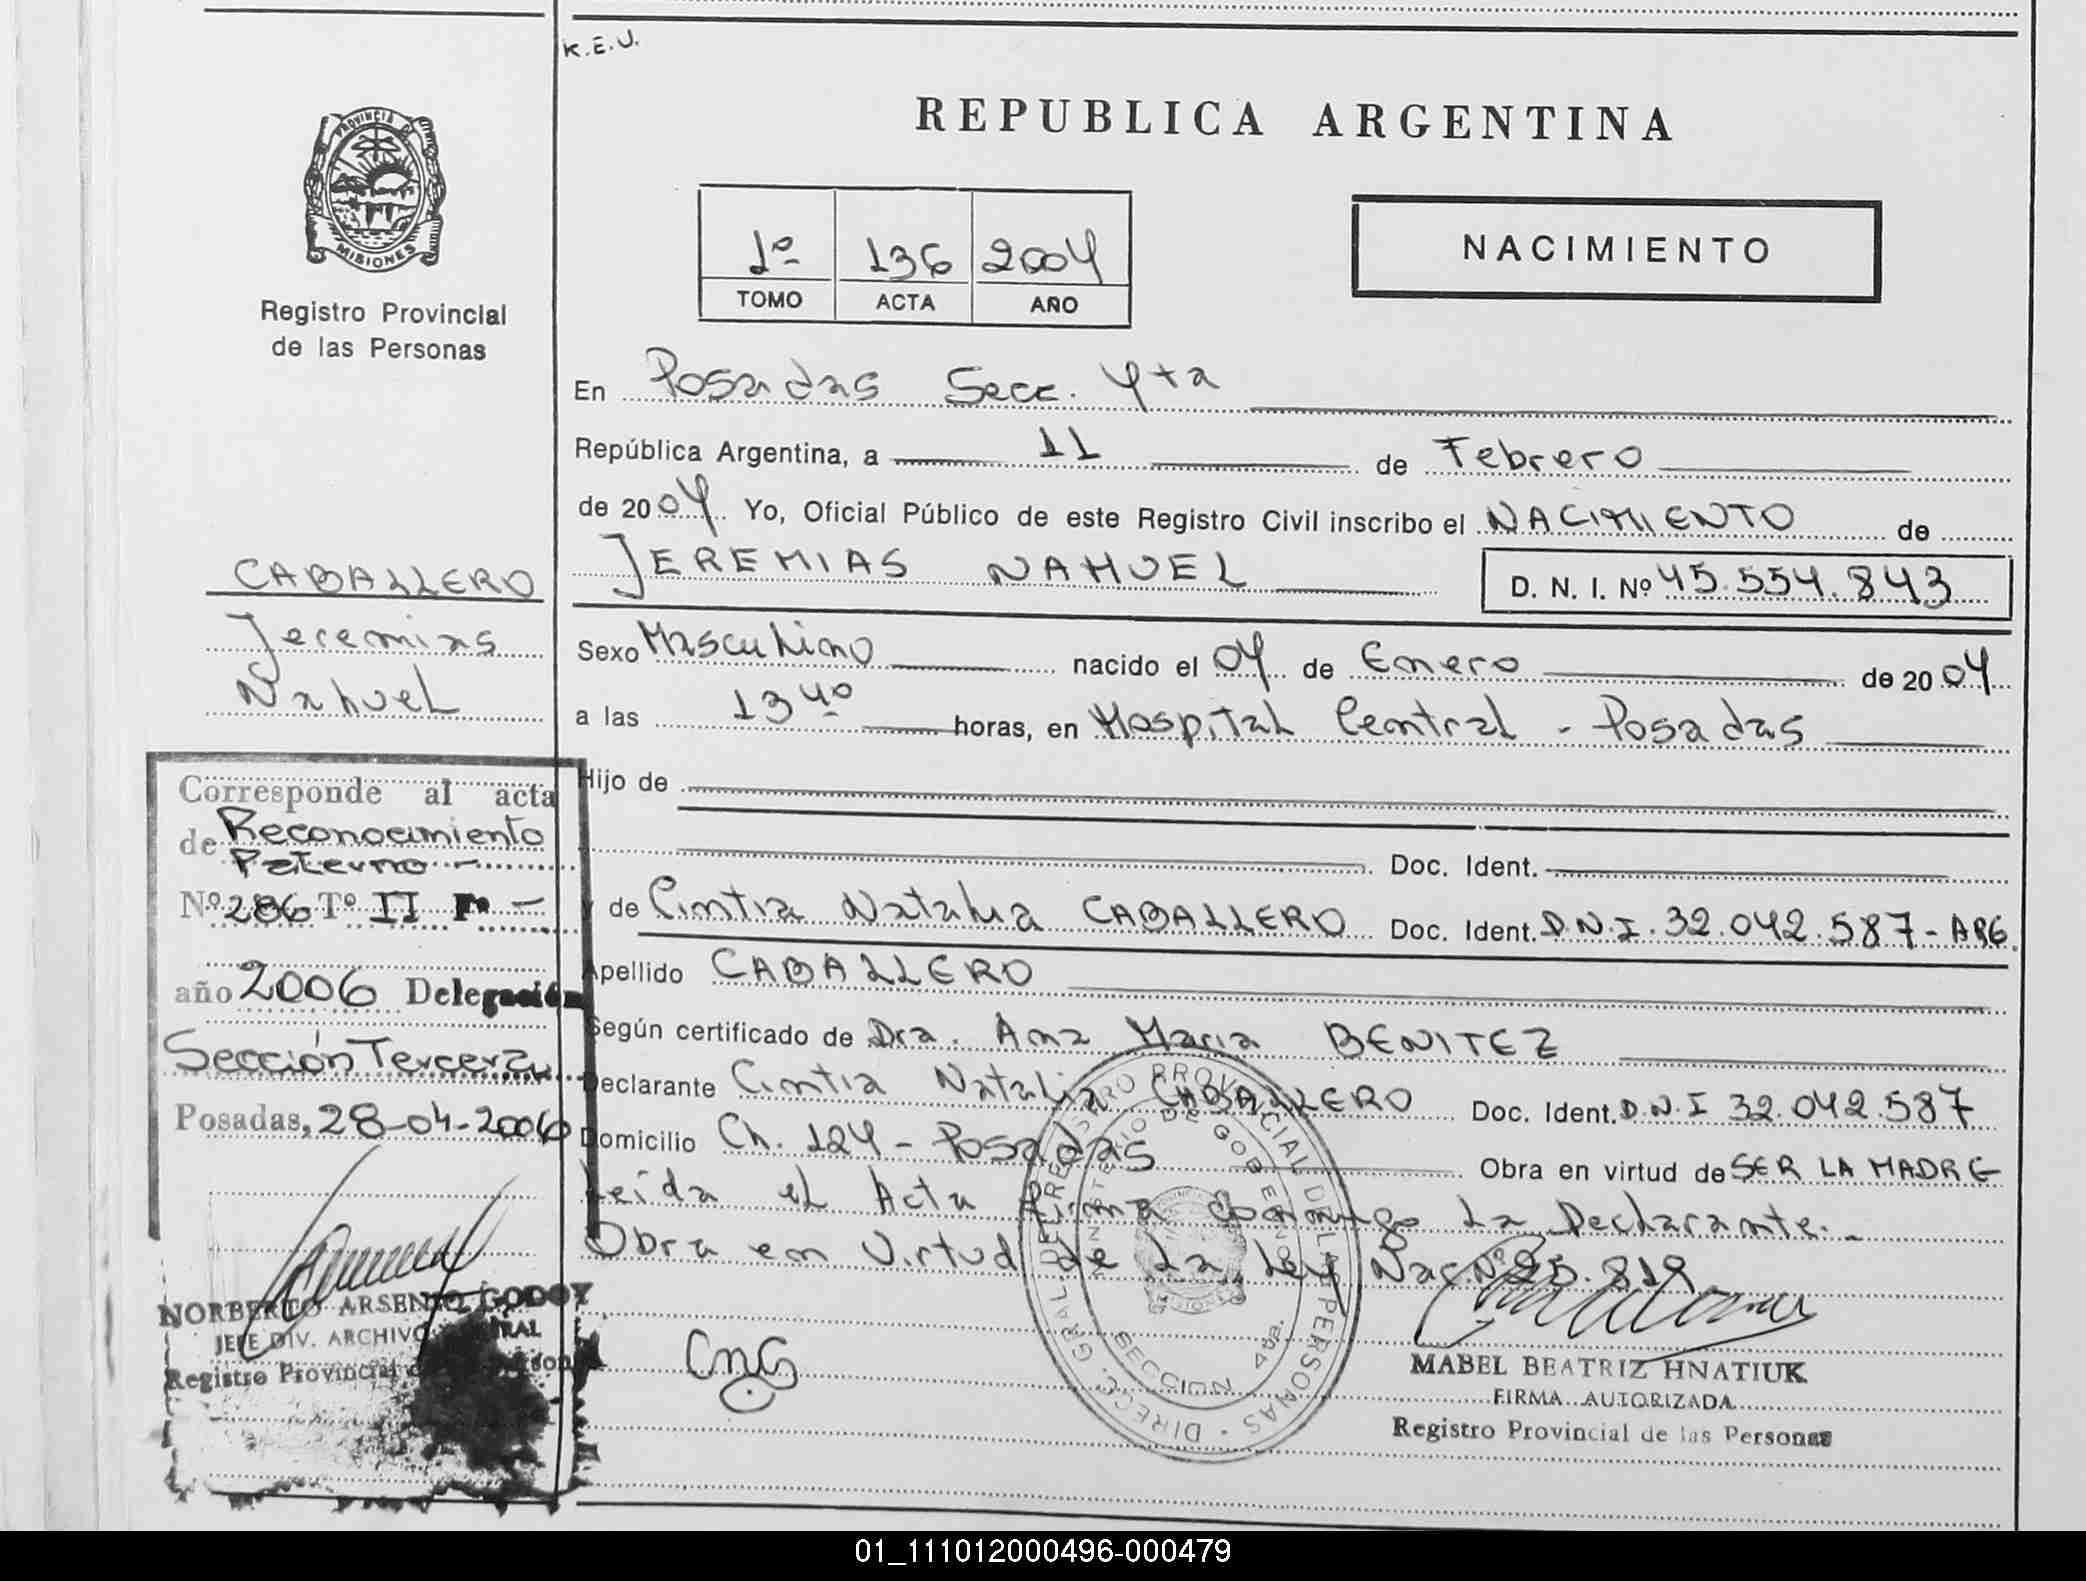 K.E.J.
REPUBLICA ARGENTINA
PROVINCIA DE
MISIONES
Registro Provincial
de las Personas
1º 136 2004
TOMO ACTA AÑO
NACIMIENTO
En Posadas Secc. 4ta
República Argentina, a 11 de Febrero
de 2004 Yo, Oficial Público de este Registro Civil inscribo el NACIMIENTO de
JEREMIAS NAHUEL D. N. I. Nº 45.554.843
CABALLERO
Jeremias
Nahuel
Sexo Masculino nacido el 04 de Enero de 2004
a las 13 40 horas, en Hospital Central - Posadas
Hijo de
Doc. Ident.
y de Cintia Natalia CABALLERO Doc. Ident. D.N.I. 32.042.587-ARG.
Apellido CABALLERO
Según certificado de Dra. Ana Maria BENITEZ
Declarante Cintia Natalia CABALLERO Doc. Ident. D.N.I 32.042.587
Domicilio Ch. 124 - Posadas Obra en virtud de SER LA MADRE
Leída el Acta Firma conmigo La Declarante.-
Obra en Virtud de La Ley Nac. Nº 25.819
Corresponde al acta
de Reconocimiento
Paterno -
Nº 286 Tº II Fº -
año 2006 Delegación
Sección Tercera
Posadas, 28-04-2006
NORBERTO ARSENIO GODOY
JEFE DIV. ARCHIVO
Registro Provincial
CnG
DIREC. GRAL. DE REGISTRO PROVINCIAL DE LAS PERSONAS
MINISTERIO DE GOBIERNO
SECCION 4ta.
MABEL BEATRIZ HNATIUK
FIRMA AUTORIZADA
Registro Provincial de las Personas
01_111012000496-000479